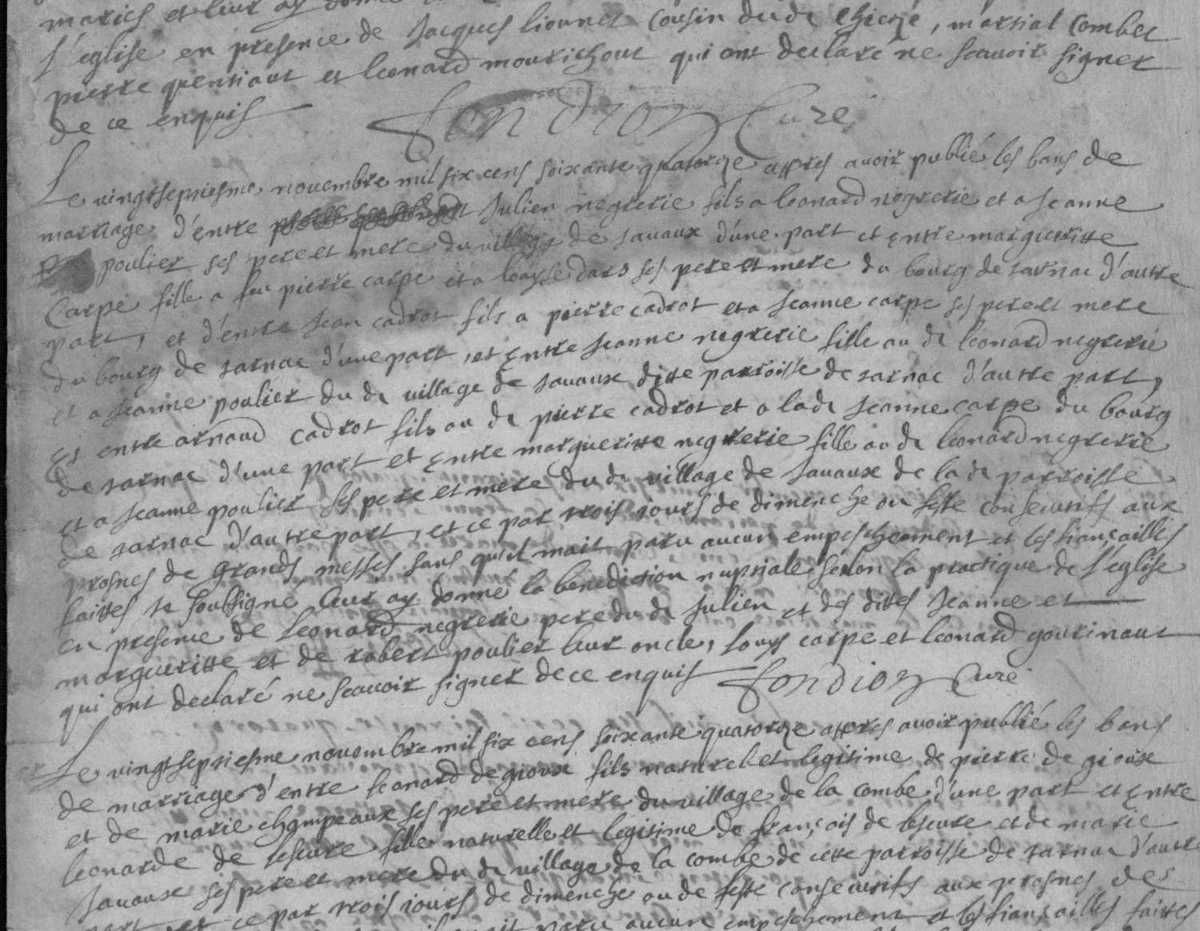 mariés et leur ay donné
l'eglise en presence de Jacques lionnet cousin du di chieze, martial combet
pierre quentiaut et leonard mourichout qui ont declaré ne scavoir signer
de ce enquis fondion Curé
Le vingtseptiesme novembre mil six cens soixante quatorze appres avoir publié les bans de
marriage d'entre Julien negrerie fils a leonard negrerie et a Jeanne
poulier ses pere et mere du village de savaux d'une part et entre margueritte
Carpe fille a feu pierre carpe et a louyse dars ses pere et mere du bourg de sarnac d'autre
part, et d'entre Jean cadrot fils a pierre cadrot et a Jeanne carpe ses pere et mere
du bourg de sarnac d'une part, et entre Jeanne negrerie fille au di leonard negrerie
et a Jeanne poulier du di village de savaux ditte parroisse de sarnac d'autre part,
et entre arnaud cadrot fils au di pierre cadrot et a la di Jeanne carpe du bourg
de sarnac d'une part et entre margueritte negrerie fille au di leonard negrerie
et a Jeanne poulier ses pere et mere du di village de savaux de la di parroisse
de sarnac d'autre part, et ce par trois jours de dimenche ou feste consecutifs aux
prosnes de grands messes sans qu'il m'ait paru aucun empeschement et les fiançailles
faittes je soussigné leur ay donné la benediction nuptiale selon la practique de l'eglise
en presence de leonard negrerie pere du di Julien et des dittes Jeanne et
margueritte et de robert poulier leur oncle, louys carpe et leonard gourinaut
qui ont declaré ne scavoir signer de ce enquis fondion Curé
Le vingtseptiesme novembre mil six cens soixante quatorze appres avoir publié les bans
de marriage d'entre leonard de gioux fils naturel et legitime de pierre de gioux
et de marie champeaux ses pere et mere du village de la combe d'une part et entre
leonarde de lescure fille naturelle et legitime de françois de lescure et de marie
savaux ses pere et mere du di village de la combe de cette parroisse de sarnac d'autre
part et ce par trois jours de dimenche ou de feste consecutifs aux prosnes des
paru aucun empeschement et les fiançailles faittes